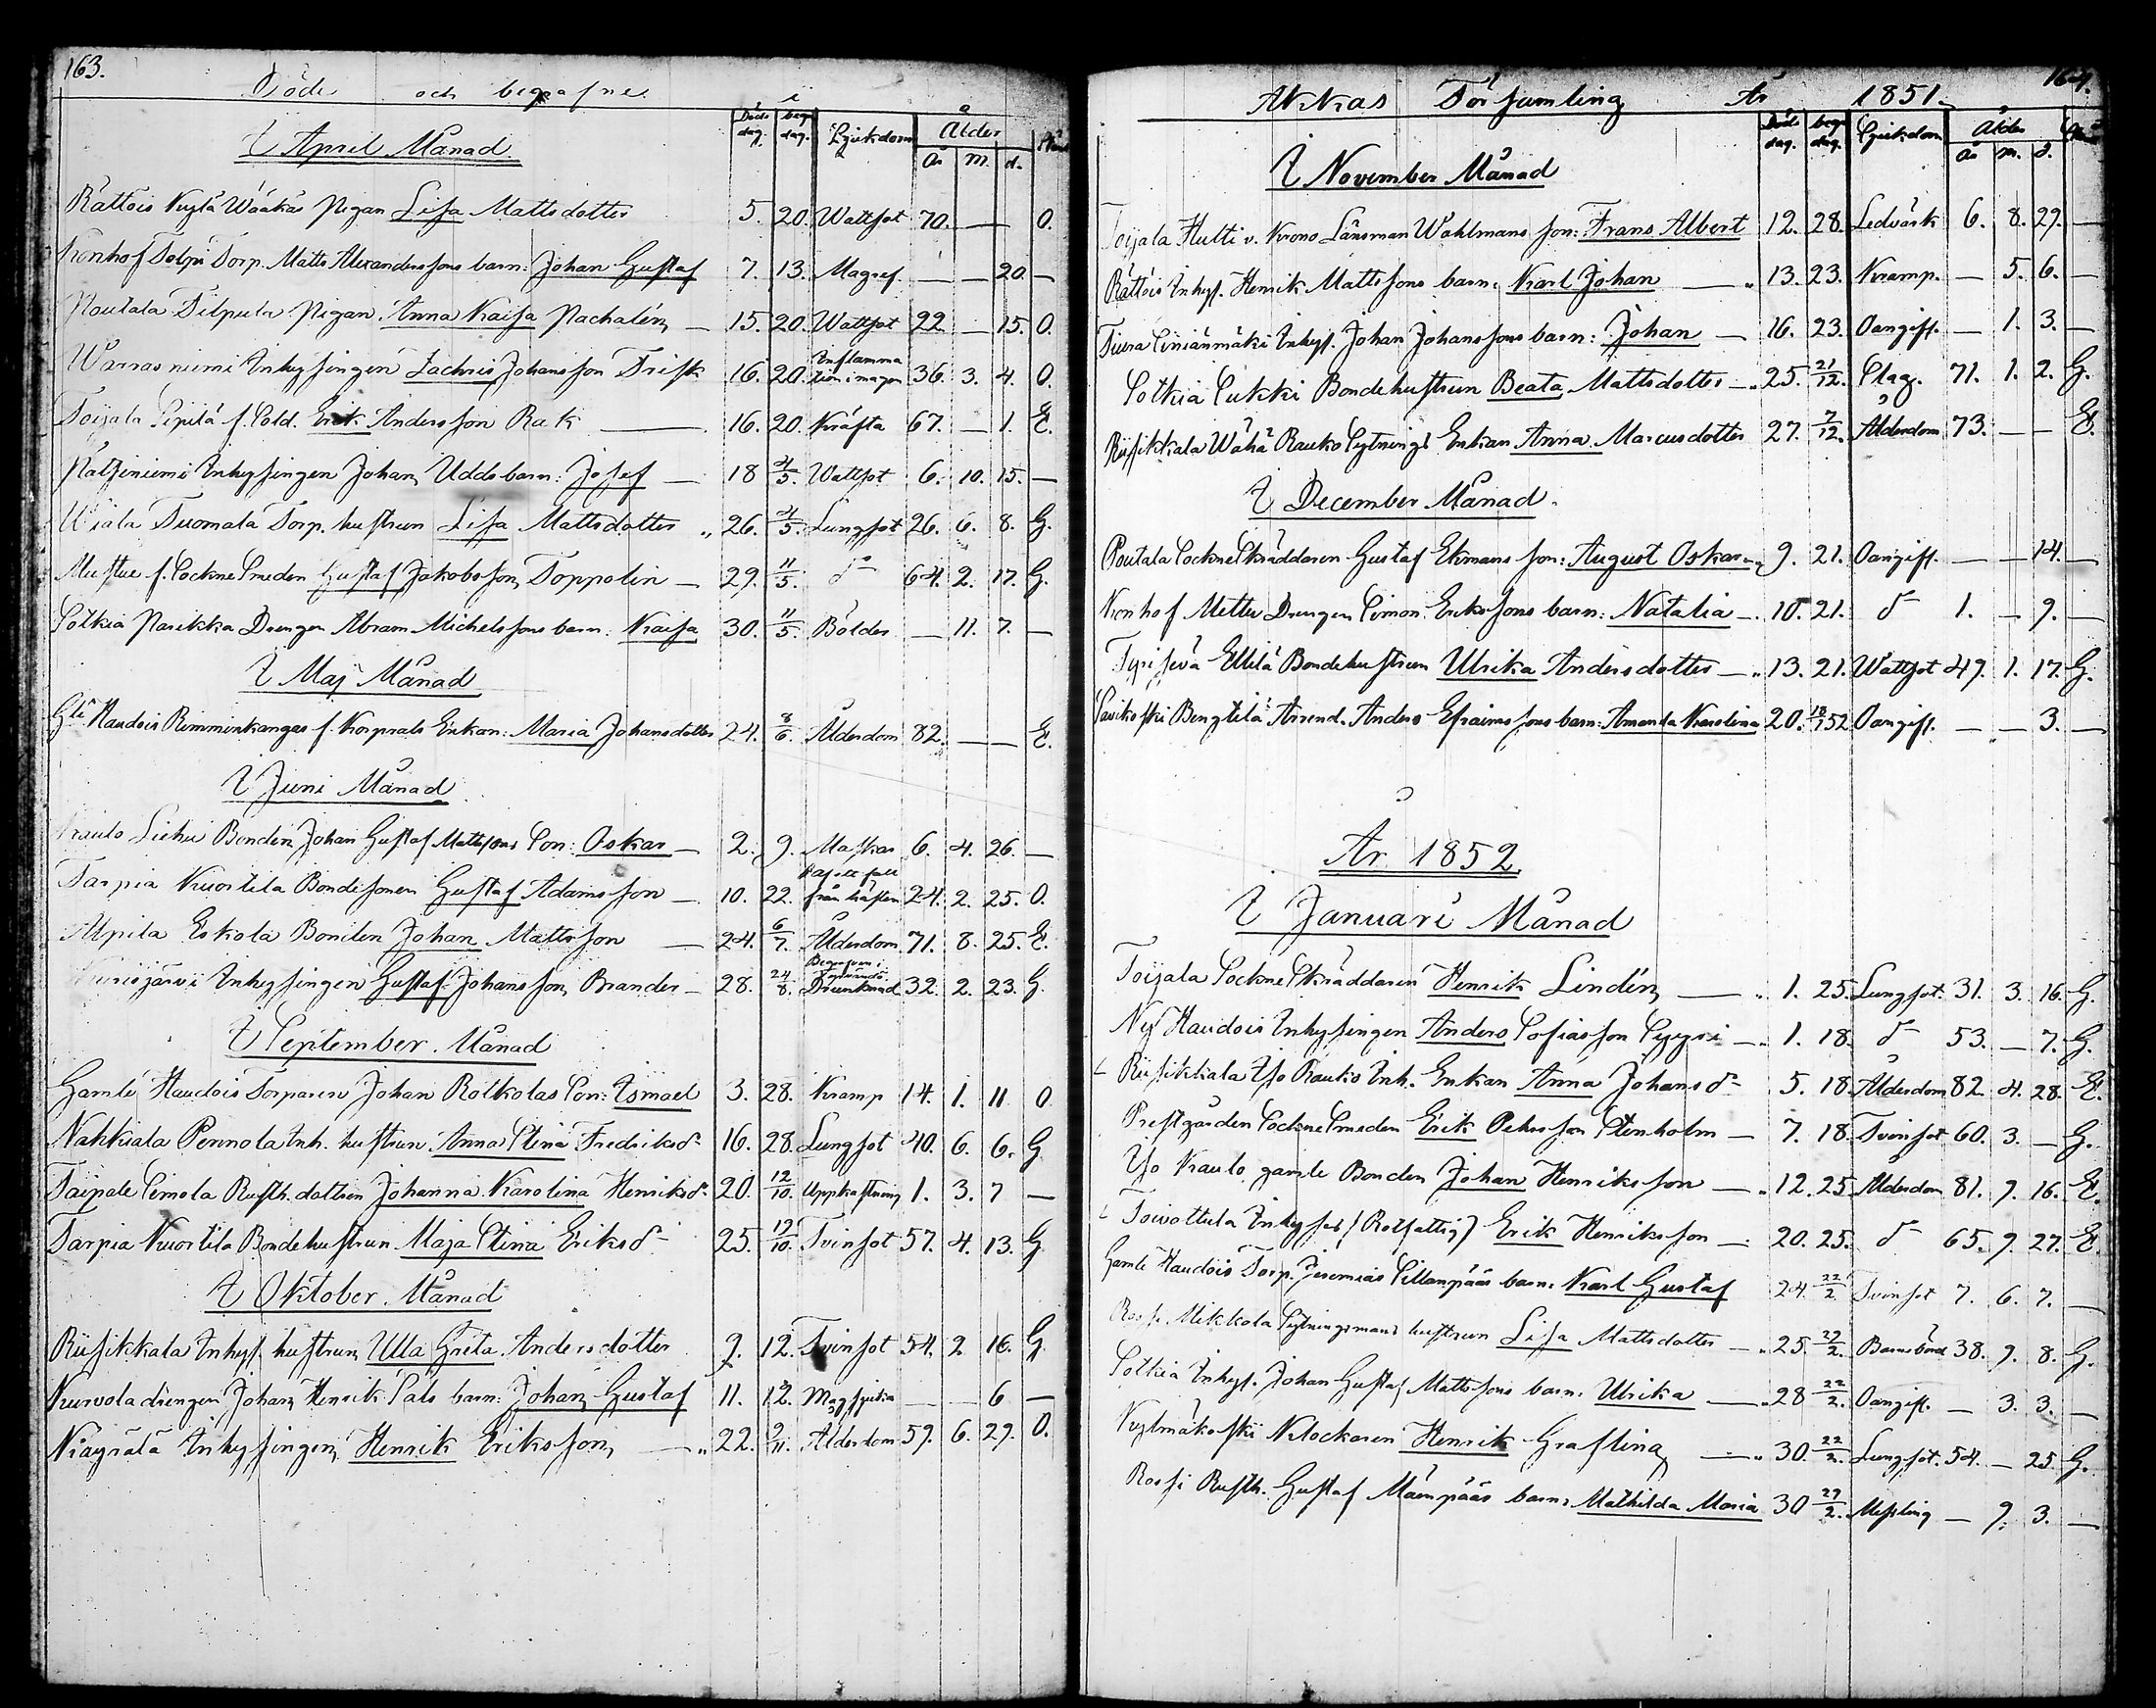 163.
Döde och begrafne i
Död. dag. begr. dag. Sjukdom Ålder Stånd
År m. d.
I April Månad
Rättöis Nygla Wääkäs Pigan Lisa Mattsdotter 5. 20. Wattsot 70. — O.
Kronhof Tolpi Torp. Matts Alexanderssons barn: Johan Gustaf 7. 13. Magref. — — 20. —
Poutala Tilpula Pigan Anna Kaisa Pachalén — 15. 20. Wattsot 22 — 15. O.
Warrasniemi Inhysingen Zachris Johansson Frisk 16. 20. Inflammation i magen 36. 3. 4. O.
Toijala Sipilä f. Sold. Erik Andersson Rak — 16. 20. Kräfta 67. — 1. E.
Pätsiniemi Inhysingen Johan Udds barn: Josef — 18 4/5. Wattsot 6. 10. 15. —
Wiala Tuomala Torp. hustrun Lisa Mattsdotter „ 26. 4/5. Lungsot 26. 6. 8. G.
Mustue f. Sockne Smeden Gustaf Jakobsson Toppolin — 29. 11/5. d° 64. 2. 17. G.
Sotkia Parikka Drengen Abram Michelssons barn: Kaisa 30. 11/5. Bölder — 11. 7. —
I Maj Månad
Gle Haudois Rimminkangas f. Korprals Enkan: Maria Johansdotter 24. 8/6. Ålderdom 82. — — E.
I Juni Månad
Kaulo Liehu Bonden Johan Gustaf Mattssons Son: Oskar — 2. 9. Maskar 6. 4. 26. —
Tarpia Kuortila Bondesonen Gustaf Adamsson — 10. 22. Af ett fall från hästen 24. 2. 25. O.
Alpila Eskola Bonden Johan Mattsson — 24. 6/7. Ålderdom 71. 8. 25. E.
Kurisjärvi Inhysingen Gustaf Johansson Brander — 28. 24/8. Begrafven i Drunknad 32. 2. 23. G.
I September Månad
Gamle Haudois Torparen Johan Rotkolas Son: Ismael 3. 28. Kramp 14. 1. 11 O
Nahkiala Pennola Inh. hustrun Anna Stina Fredriksd:r 16. 28. Lungsot 40. 6. 6. G
Taipale Simola Rusth. dottren Johanna Karolina Henriksd:r 20. 12/10. Uppkastning 1. 3. 7 —
Tarpia Kuortila Bondehustrun Maja Stina Eriksd:r 25. 12/10. Tvinsot 57. 4. 13. G
I Oktober Månad
Riisikkala Inhys. hustrun Ulla Greta Andersdotter 9. 12. Tvinsot 54. 2 16. G.
Kurvola drengen Johan Henrik Sals barn: Johan Gustaf 11. 12. Magsjuka — — 6 —
Kägrälä Inhysingen Henrik Eriksson — „ 22. 9/11. Ålderdom 59. 6. 29. O.
164.
Akkas Församling År 1851.
Död. dag. begr. dag. Sjukdom Ålder Stånd
År m. d.
I November Månad
Toijala Hutti v. Krono Länsman Wahlmans son: Frans Albert 12. 28. Ledvärk 6. 8. 29. —
Rättöis Inhys. Henrik Mattssons barn: Karl Johan — „ 13. 23. Kramp. — 5. 6. —
Tiura Siniänmäki Inhys. Johan Johanssons barn: Johan — 16. 23. Oangift. — 1. 3. —
Sotkia Sukki Bondehustrun Beata Mattsdotter — „ 25. 21/12. Slag. 71. 1. 2. G.
Riisikkala Wähä Rauko Sytnings Enkan Anna Marcusdotter 27. 7/12. Ålderdom 73. — — E.
I December Månad.
Poutala Sockne Skräddaren Gustaf Ekmans son: August Oskar „ 9. 21. Oangift. — — 14. —
Kronhof Mettu Drengen Simon Erikssons barn: Natalia —. 10. 21. d° 1. — 9. —
Tyrisevä Ellilä Bondehustrun Ulrika Andersdotter — „ 13. 21. Wattsot 49. 1. 17. G.
Savikoski Bengtilä Arrend. Anders Efraimssons barn: Amanda Karolina 20. 18/1 52 Oangift. — — 3. —
År 1852
I Januari Månad
Toijala Sockne Skräddaren Henrik Lindén — „ 1. 25. Lungsot. 31. 3. 16. G.
Ny Haudois Inhysingen Anders Sofiasson Syyri — „ 1. 18. d° 53. — 7. G.
Riisikkala Yso Rauko Inh. Enkan Anna Johansd:r 5. 18. Ålderdom 82. 4. 28. E.
Prestgården Sockne Smeden Erik Pehrsson Stenholm — 7. 18. Tvinsot 60. 3. — G.
Yso Kaulo gamle Bonden Johan Henriksson — „ 12. 25. Ålderdom 81. 9. 16. E.
Toivottula Inhyses (Rotfattig) Erik Henriksson — . 20. 25. d° 65. 9. 27. E.
Gamle Haudois Torp. Jeremias Sillanpääs barn: Karl Gustaf 24. 22/2. Tvinsot 7. 6. 7. —
Rossi Mikkola Sytningsmans hustrun Lisa Mattsdotter — „ 25. 22/2. Barnsbörd 38. 9. 8. G.
Sotkia Inhys. Johan Gustaf Mattssons barn: Ulrika — „ 28 22/2. Oangift. — 3. 3. —
Kylmäkoski Klockaren Henrik Grafling — „ 30. 22/2. Lungsot. 54. — 25. G.
Rossi Rusth. Gustaf Mäenpääs barn: Mathilda Maria 30 29/2. Messling — 9. 3. —